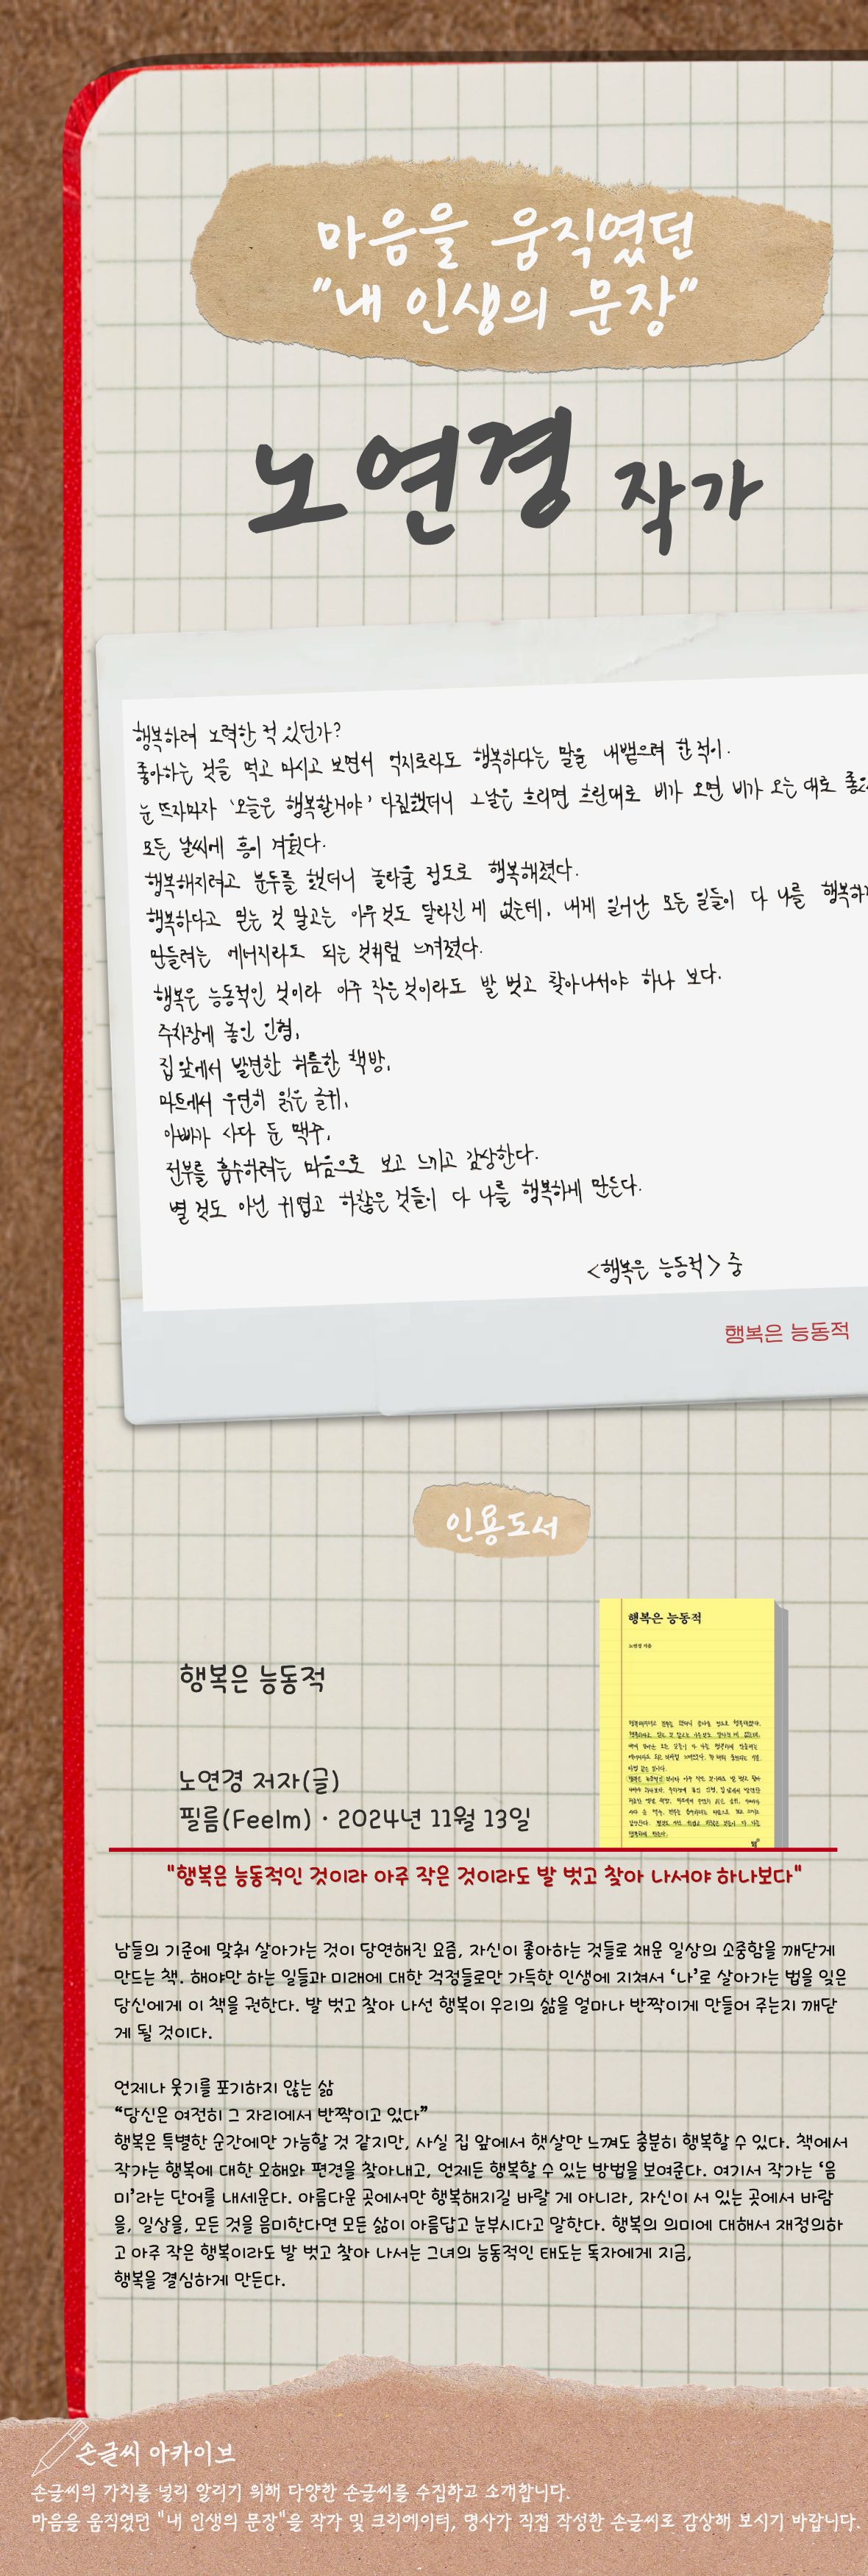 마음을 움직였던
"내 인생의 문장"
노연경 작가
행복하려 노력한 적 있던가?
좋아하는 것을 먹고 마시고 보면서 억지로라도 행복하다는 말을 내뱉으려 한 적이.
눈 뜨자마자 '오늘은 행복할거야' 다짐했더니 그날은 흐리면 흐린대로 비가 오면 비가 오는 대로
모든 날씨에 흥이 겨웠다.
행복해지려고 분투를 했더니 놀라울 정도로 행복해졌다.
행복하다고 믿는 것 말고는 아무것도 달라진 게 없는데, 내게 일어난 모든 일들이 다 나를
만들려는 에너지라도 되는 것처럼 느껴졌다.
행복은 능동적인 것이라 아주 작은 것이라도 발 벗고 찾아나서야 하나 보다.
주차장에 놓인 인형,
집 앞에서 발견한 허름한 책방,
마트에서 우연히 읽은 글귀,
아빠가 사다 둔 맥주,
전부를 흡수하려는 마음으로 보고 느끼고 감상한다.
별 것도 아닌 귀엽고 하찮은 것들이 다 나를 행복하게 만든다.
<행복은 능동적> 중
행복은 능동적
인용도서
행복은 능동적
노연경 지음
행복은 능동적
노연경 저자(글)
필름(Feelm) · 2024년 11월 13일
"행복은 능동적인 것이라 아주 작은 것이라도 발 벗고 찾아 나서야 하나보다"
남들의 기준에 맞춰 살아가는 것이 당연해진 요즘, 자신이 좋아하는 것들로 채운 일상의 소중함을 깨닫게
만드는 책. 해야만 하는 일들과 미래에 대한 걱정들로만 가득한 인생에 지쳐서 ‘나’로 살아가는 법을 잊은
당신에게 이 책을 권한다. 발 벗고 찾아 나선 행복이 우리의 삶을 얼마나 반짝이게 만들어 주는지 깨닫
게 될 것이다.
언제나 웃기를 포기하지 않는 삶
“당신은 여전히 그 자리에서 반짝이고 있다”
행복은 특별한 순간에만 가능할 것 같지만, 사실 집 앞에서 햇살만 느껴도 충분히 행복할 수 있다. 책에서
작가는 행복에 대한 오해와 편견을 찾아내고, 언제든 행복할 수 있는 방법을 보여준다. 여기서 작가는 ‘음
미’라는 단어를 내세운다. 아름다운 곳에서만 행복해지길 바랄 게 아니라, 자신이 서 있는 곳에서 바람
을, 일상을, 모든 것을 음미한다면 모든 삶이 아름답고 눈부시다고 말한다. 행복의 의미에 대해서 재정의하
고 아주 작은 행복이라도 발 벗고 찾아 나서는 그녀의 능동적인 태도는 독자에게 지금,
행복을 결심하게 만든다.
손글씨 아카이브
손글씨의 가치를 널리 알리기 위해 다양한 손글씨를 수집하고 소개합니다.
마음을 움직였던 "내 인생의 문장"을 작가 및 크리에이터, 명사가 직접 작성한 손글씨로 감상해 보시기 바랍니다.